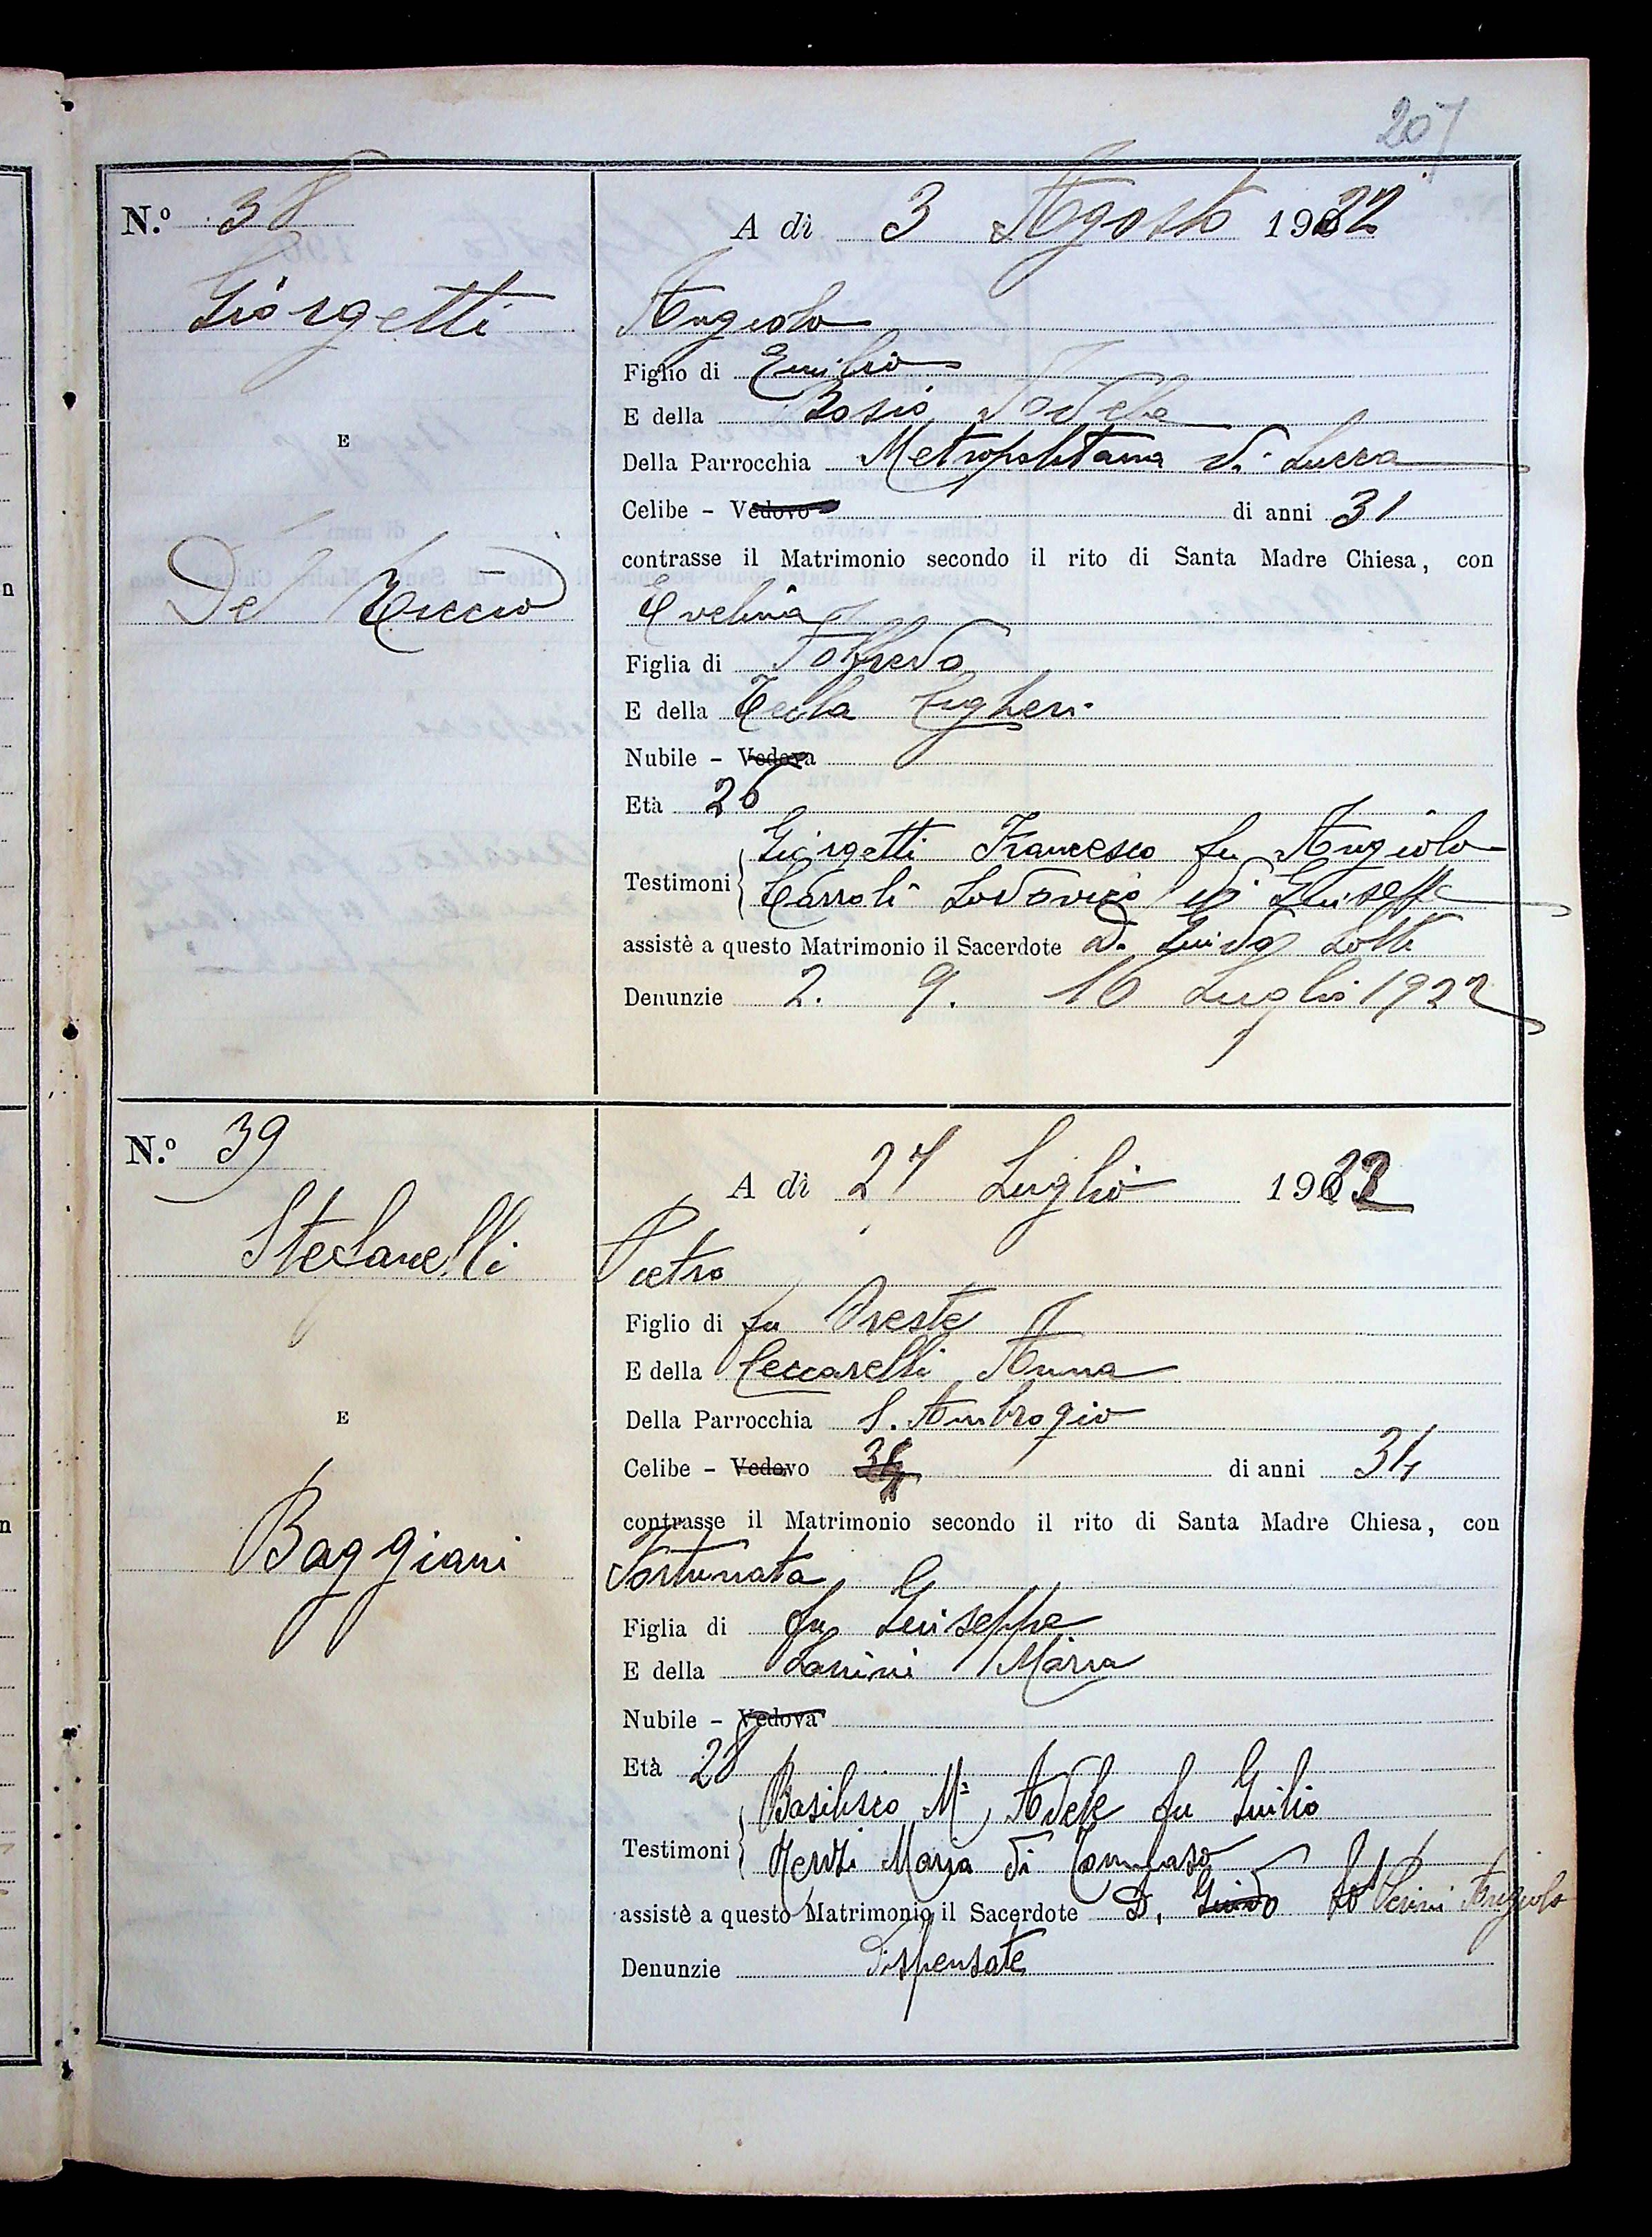 207
N.º 38
A dì 3 Agosto 1922
Giorgetti
Angiolo
Figlio di Emilio
E della
E
Della Parrocchia Metropolitana di Lucca
Celibe - Vedovo di anni 31
contrasse il Matrimonio secondo il rito di Santa Madre Chiesa, con
Del
Evelina
Figlia di Goffredo
E della Tecla
Nubile - Vedova
Età 26
Giorgetti Francesco fu Angiolo
Testimoni Lodovico di Giuseppe
assistè a questo Matrimonio il Sacerdote D. Guido Lotti
Denunzie 2. 9. 16 Luglio 1922
N.º 39
A dì 27 Luglio 1922
Stefanelli
Pietro
Figlio di fu Oreste
E della Ceccarelli Anna
E
Della Parrocchia S. Ambrogio
Celibe - Vedovo di anni 34
contrasse il Matrimonio secondo il rito di Santa Madre Chiesa, con
Baggiani
Fortunata
Figlia di fu Giuseppe
E della Lanini Maria
Nubile - Vedova
Età 28
Basilisco Mª Adele fu Giulio
Testimoni Maria di Tommaso
assistè a questo Matrimonio il Sacerdote D. Guido Angiolo
Denunzie Dispensate